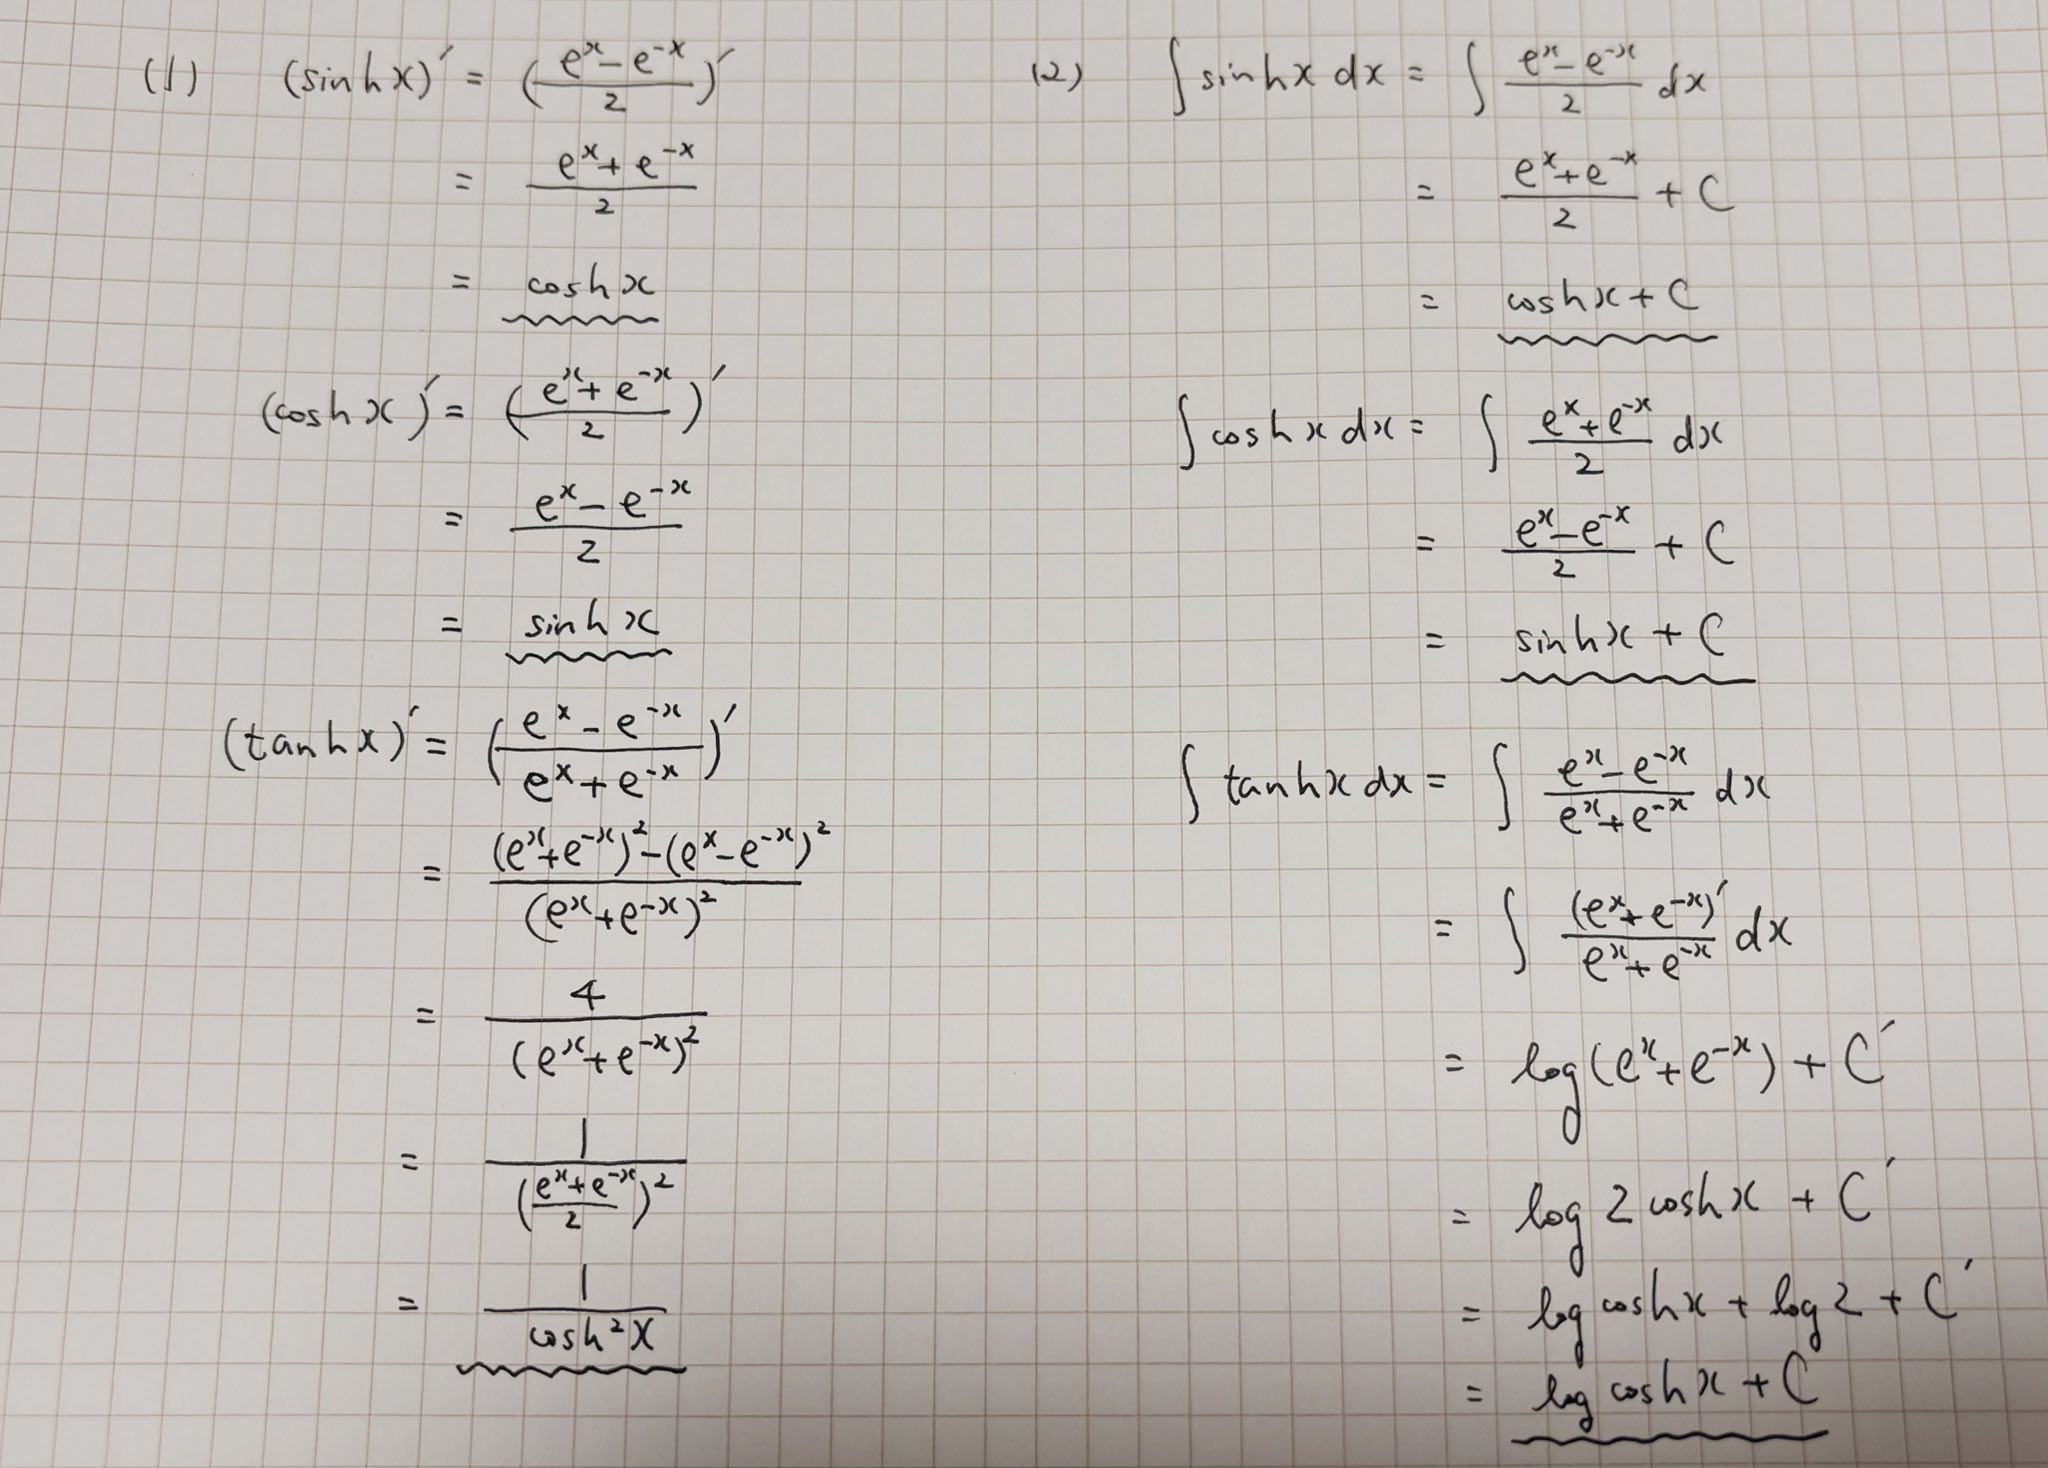 (1) (sinh x)′ = ((e^x − e^{-x})/2)′
= (e^x + e^{-x})/2
= cosh x
(cosh x)′ = ((e^x + e^{-x})/2)′
= (e^x − e^{-x})/2
= sinh x
(tanh x)′ = ((e^x − e^{-x})/(e^x + e^{-x}))′
= ((e^x + e^{-x})² − (e^x − e^{-x})²)/(e^x + e^{-x})²
= 4/(e^x + e^{-x})²
= 1/((e^x + e^{-x})/2)²
= 1/cosh² x
(2) ∫ sinh x dx = ∫ (e^x − e^{-x})/2 dx
= (e^x + e^{-x})/2 + C
= cosh x + C
∫ cosh x dx = ∫ (e^x + e^{-x})/2 dx
= (e^x − e^{-x})/2 + C
= sinh x + C
∫ tanh x dx = ∫ (e^x − e^{-x})/(e^x + e^{-x}) dx
= ∫ (e^x + e^{-x})′/(e^x + e^{-x}) dx
= log(e^x + e^{-x}) + C′
= log 2 cosh x + C′
= log cosh x + log 2 + C′
= log cosh x + C